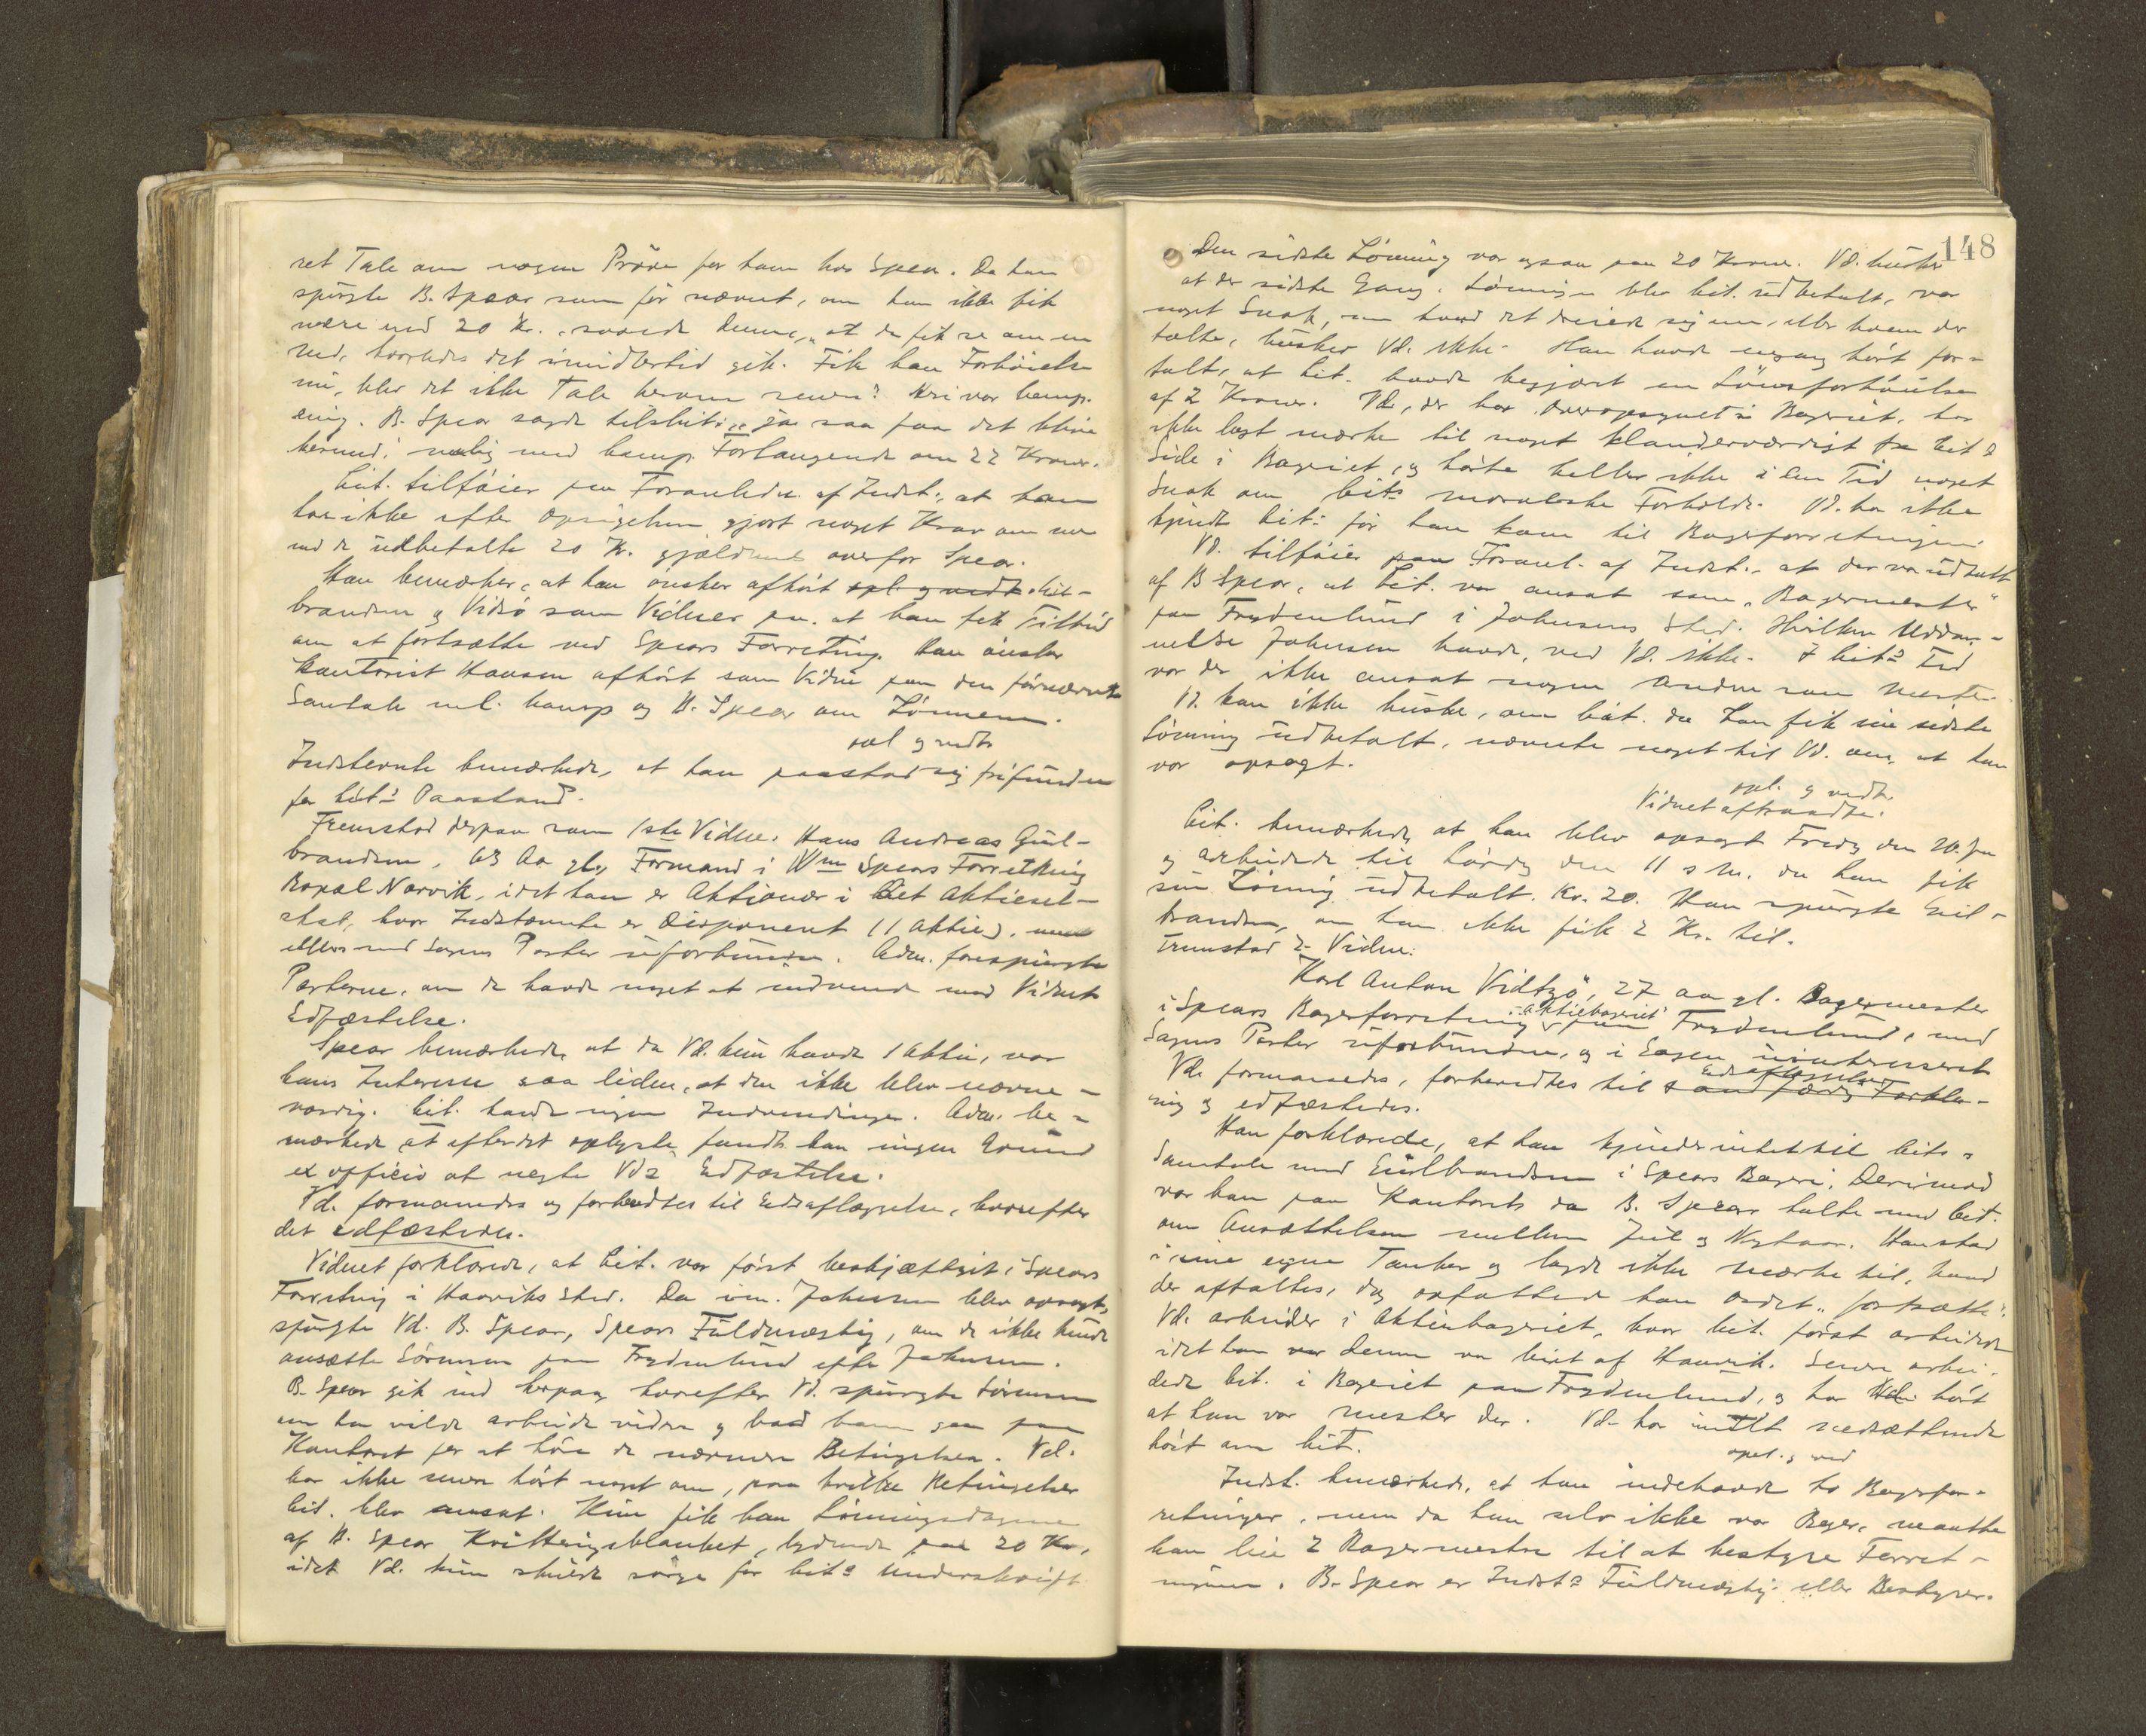 ret Tale om nogen Prøve for ham hos Spear. Da han
spurgte B. Spear som før nævnt, om han ikke fik
mere end 20 Kr., svarede denne, „at de fik se om en
Md., hvorledes det imidlertid gik. Fik han Forhøielse
nu, blev det ikke Tale herom senere? Heri var komp.
enig. B. Spear sagde tilslut: „ja saa faar det blive
hermed: nemlig med komp. Forlangende om 22 Kroner.
Cit. tilføier paa Foranledn. af Indst., at han
har ikke efter Opsigelsen gjort noget Krav om mer
end de udbetalte 20 Kr. gjældende overfor Spear.
Han bemærker, at han ønsker afhørt opl. og vedt. Gul-
brandsen og Vidsø som Vidner paa at han fik Tilbud
om at fortsætte ved Spears Forretning. Han ønsker
Kontorist Hansen afhørt som Vidne paa den førnævnte
Samtale ml. komp og B. Spear om Lønnen.
opl. og vedt.
Indstevnte bemærkede, at han paastod sig frifunden
for Cit.s Paastand.
Fremstod derpaa som 1ste Vidne: Hans Andreas Gul-
brandsen, 63 Aar gl., Formand i Wm Spears Forretning
Narvik, idet han er Aktionær i det Aktiesel-
skab, hvor Indstævnte er Disponent (1 Aktie), men
ellers med Sagens Parter uforbunden. Adm. forespurgte
Parterne, om de havde noget at indvende mod Vidnets
Edfæstelse.
Spear bemærkede, at da Vd. kun havde 1 Aktie, var
hans Interesse saa liden, at den ikke blev nævne-
værdig. Cit. havde ingen Indvendinger. Adm. be-
mærkede, at efter det oplyste, fandt han ingen Grund
ex officio at negte Vd.s Edfæstelse.
Vd. formanedes og forberedtes til Edsaflæggelse, hvorefter
det edfæstedes.
Vidnet forklarede, at Cit. var først beskjæftiget i Spears
Forretning i Haaviks Sted. Da im. Johnsen blev opsagt,
spurgte Vd. B. Spear, Spears Fuldmægtig, om de ikke kunde
ansætte Sørensen paa Frydenlund efter Johnsen.
B. Spear gik ind herpaa, hvorefter Vd. spurgte Sørensen
om han vilde arbeide videre og bad ham gaa paa
Kontoret for at høre de nærmere Betingelser. Vd.
har ikke senere hørt noget om, paa hvilke Betingelser
Cit. blev ansat. Kun fik han Lønningsdagene
af B. Spear Kvitteringsblanket, lydende paa 20 Kr.,
idet Vd. kun skulde sørge for Cit.s Underskrift
148
Den sidste Lønning var ogsaa paa 20 Kroner. Vd. husker
at der sidste Gang Lønningen blev Cit. udbetalt, var
noget Snak, men hvad det dreiede sig om, eller hvem der
talte, husker Vd. ikke. Han havde engang hørt for-
talt, at Cit. havde begjært en Lønsforhøielse
af 2 Kroner. Vd., der har Overopsynet i Bageriet, har
ikke lagt mærke til noget klanderværdigt fra Cit.s
Side i Bageriet, og hørte heller ikke i den Tid noget
Snak om Cit.s moralske Forholde. Vd. har ikke
kjendt Cit. før han kom til Bagerforretningen.
Vd. tilføier paa Foranl. af Indst., at der var udtalt
af B. Spear, at Cit. var ansat som „Bagermester“
paa Frydenlund i Johnsens Sted. Hvilken Uddan-
nelse Johnsen havde, ved Vd. ikke. I Cit.s Tid
var der ikke ansat nogen anden som Mester.
Vd. kan ikke huske, om Cit. da han fik sin sidste
Lønning udbetalt, nævnte noget til Vd. om, at han
var opsagt.
opl. og vedt.
Vidnet aftraadte.
Cit. bemærkede, at han blev opsagt Fredag den 10.
og arbeidede til Lørdag den 11 s. M. da han fik
sin Lønning udbetalt, Kr. 20. Han spurgte Gul-
brandsen, om han ikke fik 2 Kr. til.
Fremstod 2. Vidne:
Karl Anton Vidtzø, 27 aar gl. Bagermester
i Spears Bagerforretning, „Aktiebageriet“ paa Frydenlund, med
Sagens Parter uforbunden, og i Sagen uinteresseret.
Vd. formanedes, forberedtes til sandfærdig Forkla- Edsaflæggelse
ring og edfæstedes.
Han forklarede, at han kjender intet til Cits.
Samtale med Gulbrandsen i Spears Bageri. Derimod
var han paa Kontoret da B. Spear talte med Cit.
om Ansættelsen mellem Jul og Nytaar. Han stod
i sine egne Tanker og lagde ikke mærke til, hvad
der aftaltes, dog opfattede han Ordet „fortsætte“.
Vd. arbeider i Aktiebageriet, hvor Cit. først arbeidede
idet han var denne var leiet af Haavik. Senere arbei-
dede Cit. i Bageriet paa Frydenlund, og har Vd. hørt
at han var Mester der. Vd. har intet nedsættende
hørt om Cit.
opl. og ved
Indst. bemærkede, at han indehavde to Bagerfor-
retninger, men da han selv ikke var Bager, maatte
han leie 2 Bagermestre til at bestyre Forret-
ningerne. B. Spear er Indst.s Fuldmægtig eller Bestyrer.